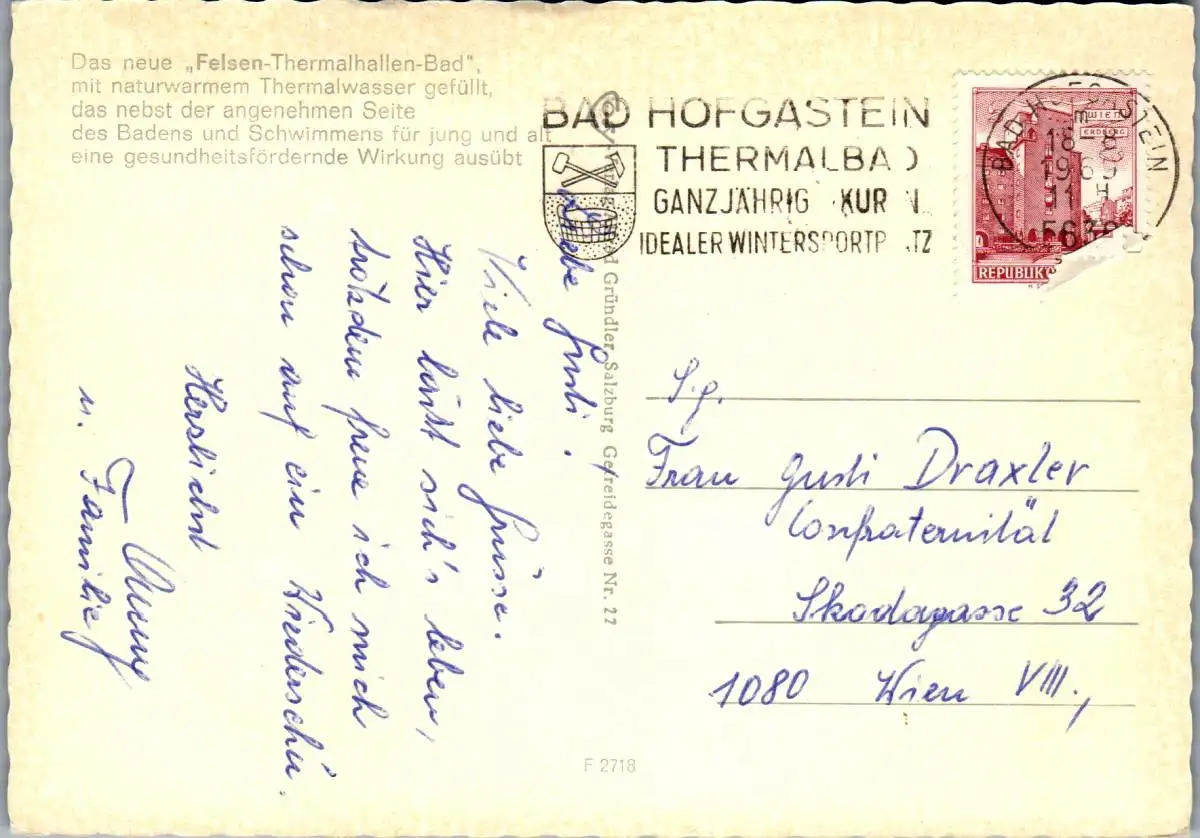 Das neue „Felsen-Thermalhallen-Bad",
mit naturwarmem Thermalwasser gefüllt,
das nebst der angenehmen Seite
des Badens und Schwimmens für jung und alt
eine gesundheitsfördernde Wirkung ausübt
BAD HOFGASTEIN
THERMALBAD
GANZJÄHRIG KUR
IDEALER WINTERSPORTPLATZ
BAD HOFGASTEIN
18-8
1969
11 H
5630
WIEN
ERDBERG
REPUBLIK
Liebe Gusti!
Viele liebe Grüsse.
Hier lässt sich's leben,
trotzdem freue ich mich
schon auf ein Wiederseh'n.
Herzlichst
u. Familie
Verlag Gründler, Salzburg Getreidegasse Nr. 22
S.g.
Frau Gusti Draxler
Confraternität
Skodagasse 32
1080 Wien VIII.,
F 2718